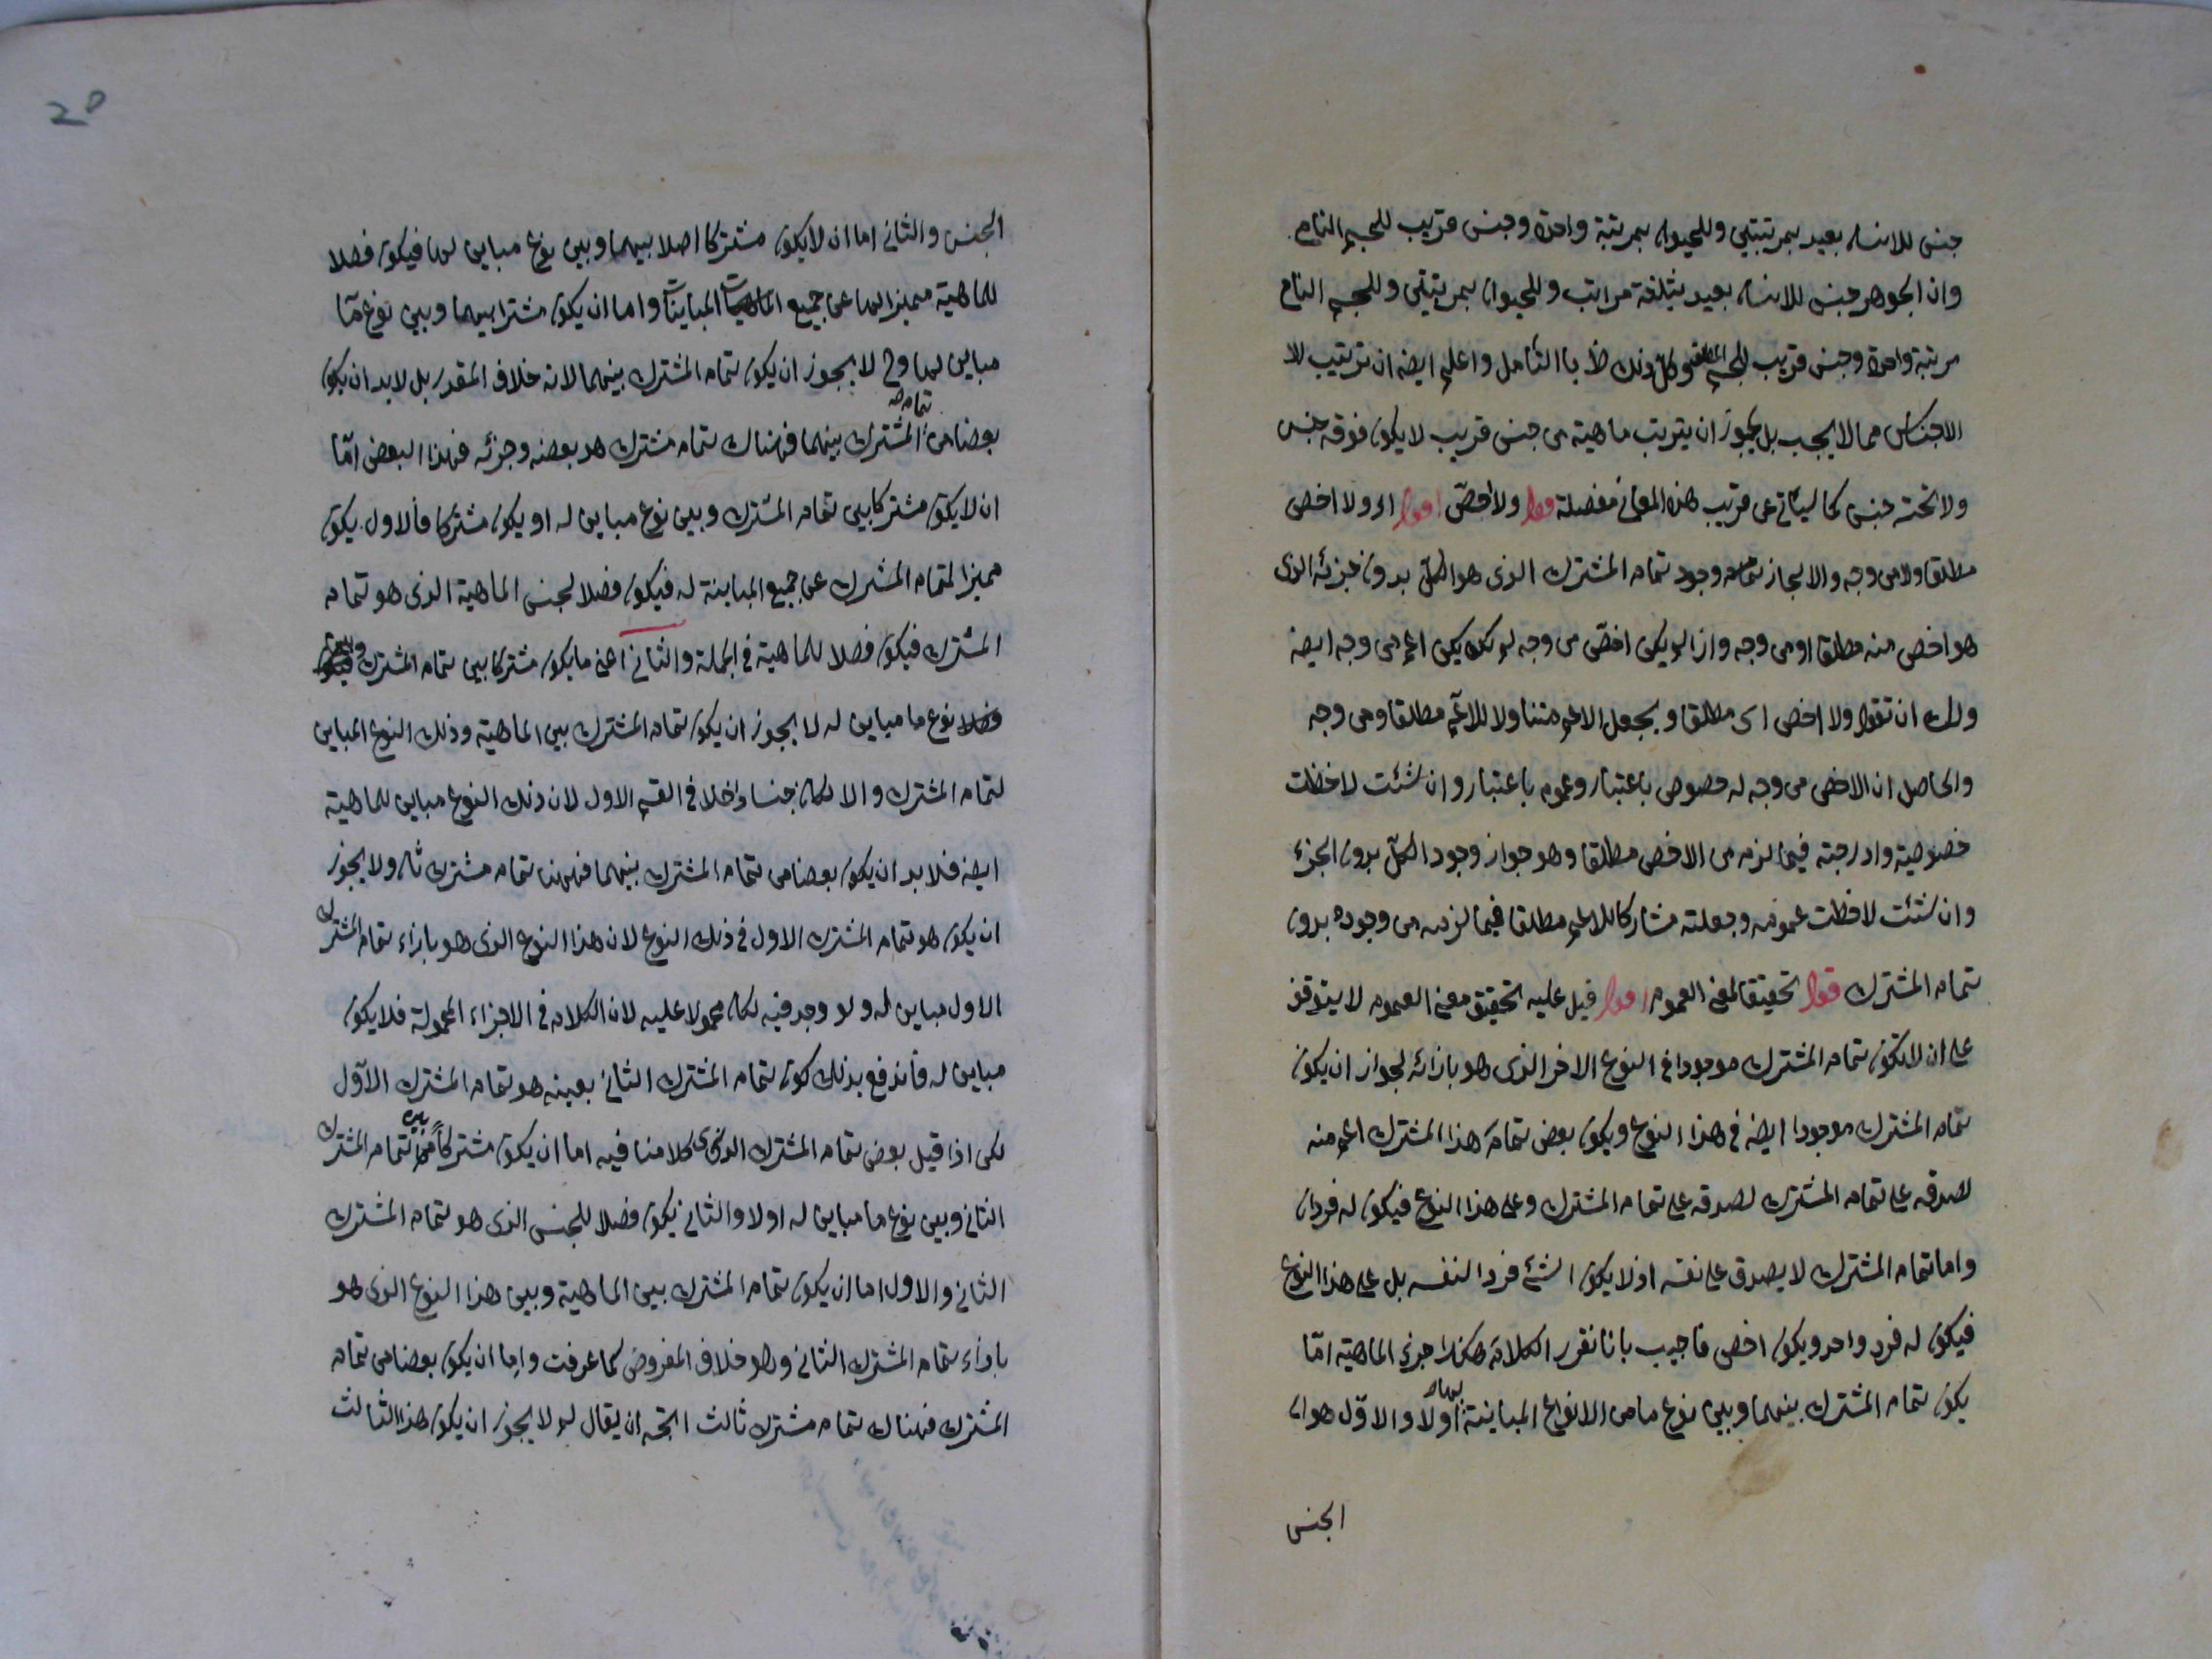 جنس للانسان بعيد بمرتبتين وللحيوان بمرتبة واحدة وجنس قريب للجسم النامي
وان الجوهر جنس للانسان بعيد بثلثة مراتب وللحيوان بمرتبتين وللجسم النام
مرتبة واحدة وجنس قريب للجسم المطلق وكل ذلك ظ باالتأمل واعلم ايضه ان ترتيب للا
الاجناس مما لا يجب بل يجوز ان يتربت ماهية من جنس قريب لا يكون فوقه جنس
ولا تحته جنس كما سيأتي عن قريب هذه المعاني مفصلة قوله ولا اخص اقول اى ولا اخص
مطلقا ولا من وجه والا لجاز وجود تمام المشترك الذى هو الكل بدون جزئه الذى
هو اخص منه مطلقا او من وجه واذا لم يكن اخص من وجه لم يكن اعم من وجه ايضه
ولك ان تقول ولا اخص اى مطلقا ويجعل الاعم متناولا للاعم مطلقا ومن وجه
والحاصل ان الاخص من وجه له خصوص باعتبار وعموم باعتبار وان شئت لاحظت
خصوصيته وادرجته فيما لزم من الاخص مطلقا وهو جواز وجود الكل بدون الجزء
وان شئت لاحظت عمومه وجعلته مشاركا للاعم مطلقا فيما لزمه من وجوده بدون
تمام المشترك قوله تحقيقا لمعنى العموم اقول قيل عليه تحقيق معنى العموم لا يتوقف
على ان لا يكون تمام المشترك موجودا فى النوع الاخر الذى هو بازائه لجواز ان يكون
تمام المشترك موجودا ايضه فى هذا النوع ويكون بعض تمام هذا المشترك اعم منه
لصدقه على تمام المشترك لصدقه على تمام المشترك وعلى هذا النوع فيكون له فردان
واما تمام المشترك لا يصدق على نفسه اذ لا يكون الشئ فردا لنفسه بل على هذا النوع
فيكون له فرد واحد ويكون اخص فاجيب بانا نقرر الكلام هكذا جزء الماهية امّا
يكون تمام المشترك بينهما وبين نوع ما من الانواع المباينة لها اولا والاول هو ال
الجنس
20
الجنس والثانى اما ان لا يكون مشتركا اصلا بينهما وبين نوع مباين لها فيكون فصلا
للماهية مميزا لها عن جميع الماهيات المباينات واما ان يكون مشترا بينهما وبين نوع ما
مباين لها وح لا يجوز ان يكون تمام المشترك بينهما لانه خلاف المقدر بل لا بد ان يكون
بعضا من تمام المشترك بينهما فهناك تمام مشترك هو بعضه وجزئه فهذا البعض امّا
ان لا يكون مشتركا بين تمام المشترك وبين نوع مباين له او يكون مشتركا فالاول يكون
مميزا لتمام المشترك عن جميع المباينة له فيكون فصلا لجنس الماهية الذى هو تمام
المشترك فيكون فصلا للماهية فى الجملة والثانى اعنى ما يكون مشتركا بين تمام المشترك وبين
نوع ما مباين له لا يجوز ان يكون تمام المشترك بين الماهية وذلك النوع المباين
لتمام المشترك والا لكان جنسا داخلا فى القسم الاول لان ذلك النوع مباين للماهية
ايضه فلا بد ان يكون بعضا من تمام المشترك بينهما فههنا تمام مشترك ثان ولا يجوز
ان يكون هو تمام المشترك الاول فى ذلك النوع لان هذا النوع الذى هو بازاء تمام المشترك
الاول مباين له ولو وجد فيه لكان محمولا عليه لان الكلام فى الاجزاء المحمولة فلا يكون
مباين له فاندفع بذلك كون تمام المشترك الثانى بعينه هو تمام المشترك الاول
لكن اذا قيل بعض تمام المشترك الذى كلامنا فيه اما ان يكون مشتركا بين تمام المشترك
الثانى وبين نوع ما مباين له اولا والثانى يكون فصلا للجنس الذى هو تمام المشترك
الثانى والاول اما ان يكون تمام المشترك بين الماهية وبين هذا النوع الذى هو
بازاء تمام المشترك الثانى وهو خلاف المفروض كما عرفت واما ان يكون بعضا من تمام
المشترك فهناك تمام مشترك ثالث اتجه ان يقال لم لا يجوز ان يكون هذا الثالث